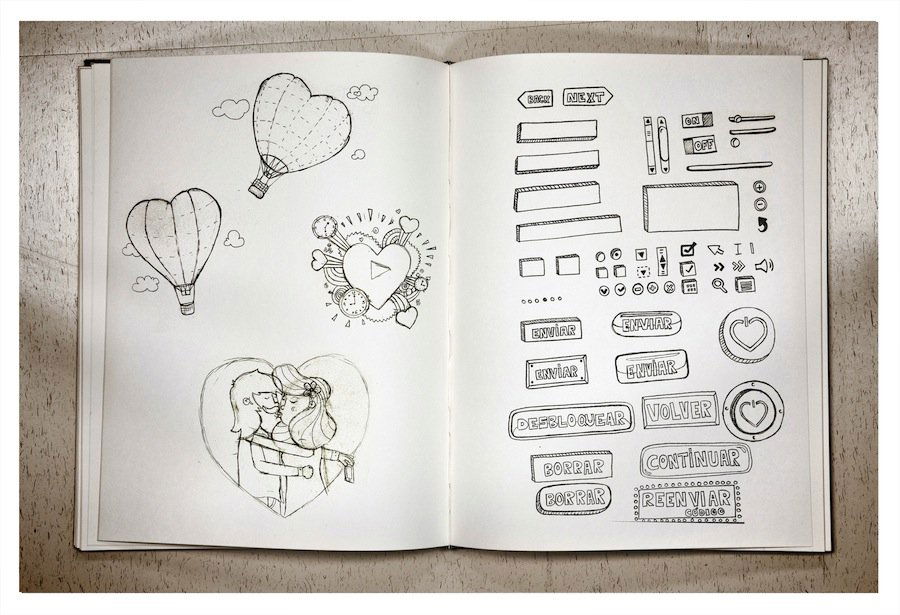 BACK NEXT
ON
OFF
ENVIAR
ENVIAR
ENVIAR
ENVIAR
DESBLOQUEAR
VOLVER
BORRAR
CONTINUAR
BORRAR
REENVIAR
CÓDIGO